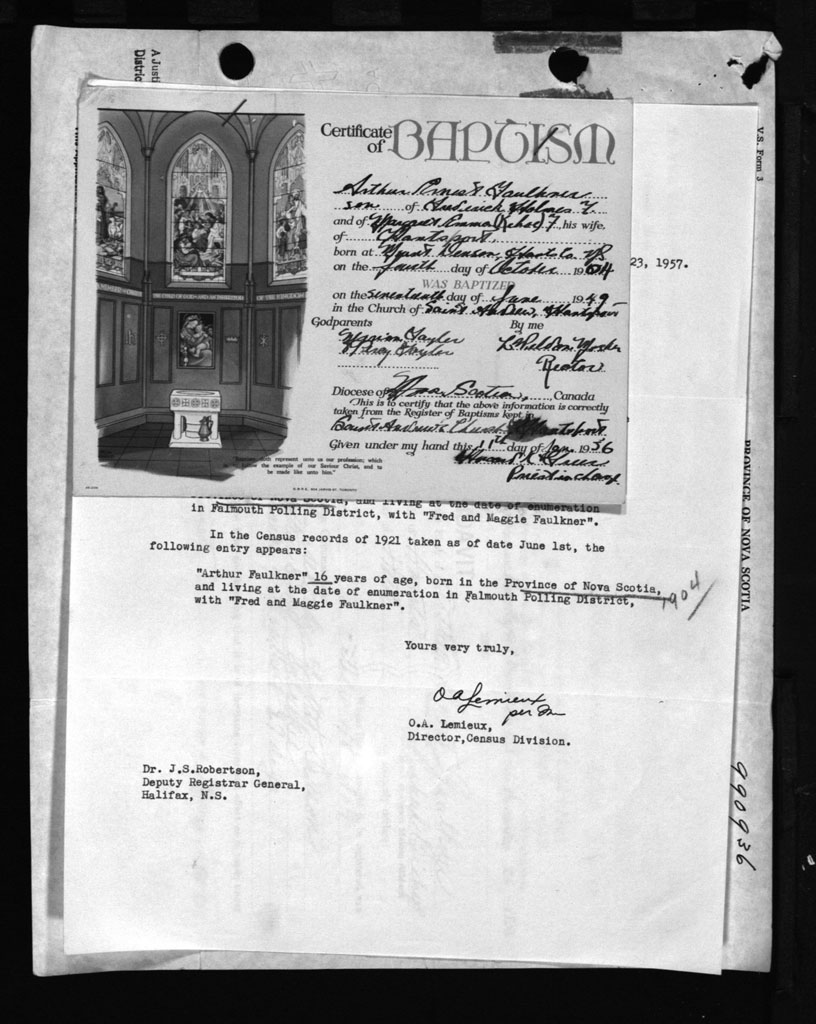 A Justi
Distric
V.S. Form 3
Certificate of BAPTISM
Arthur Ernest Faulkner
son of Frederick Holmes F.
and of Margaret Emma F., his wife,
of Hantsport
born at Mount Denson, Hants Co. NS
on the day of October 1904
WAS BAPTIZED
on the seventeenth day of June 1949
in the Church of Saint Andrew, Hantsport
Godparents By me
Taylor
Taylor
Rector
Diocese of Nova Scotia, Canada
This is to certify that the above information is correctly
taken from the Register of Baptisms kept in
Saint Andrew's Church Hantsport
Given under my hand this 11th day of Jan. 1956
Priest in charge
both represent unto us our profession; which
the example of our Saviour Christ, and to
be made like unto him."
23, 1957.
Province of Nova Scotia, and living at the date of enumeration
in Falmouth Polling District, with "Fred and Maggie Faulkner".
In the Census records of 1921 taken as of date June 1st, the
following entry appears:
"Arthur Faulkner" 16 years of age, born in the Province of Nova Scotia,
and living at the date of enumeration in Falmouth Polling District,
with "Fred and Maggie Faulkner".
1904
Yours very truly,
O A Lemieux
per
O.A. Lemieux,
Director,Census Division.
Dr. J.S.Robertson,
Deputy Registrar General,
Halifax, N.S.
PROVINCE OF NOVA SCOTIA
990936